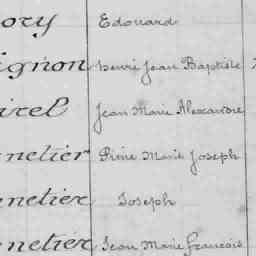 ory Edouard
ignon henri Jean Baptiste
irel Jean Marie Alexandre
netier Pierre Marie Joseph
netier Joseph
netier Jean Marie francois